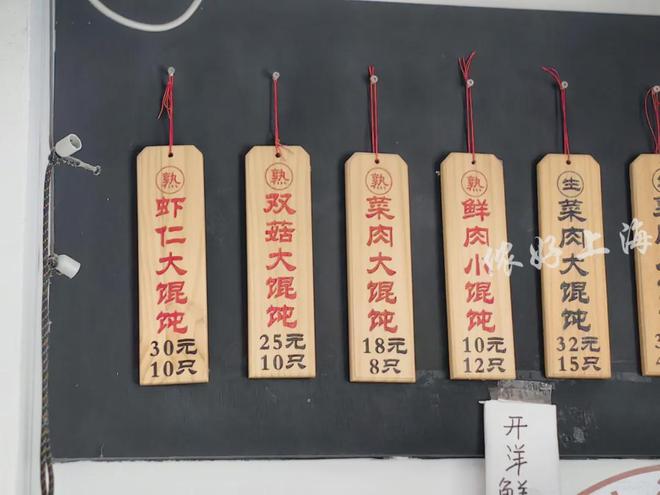 熟
虾仁大馄饨
30元
10只
熟
双菇大馄饨
25元
10只
熟
菜肉大馄饨
18元
8只
熟
鲜肉小馄饨
10元
12只
生
菜肉大馄饨
32元
15只
侬好上海
开洋鲜